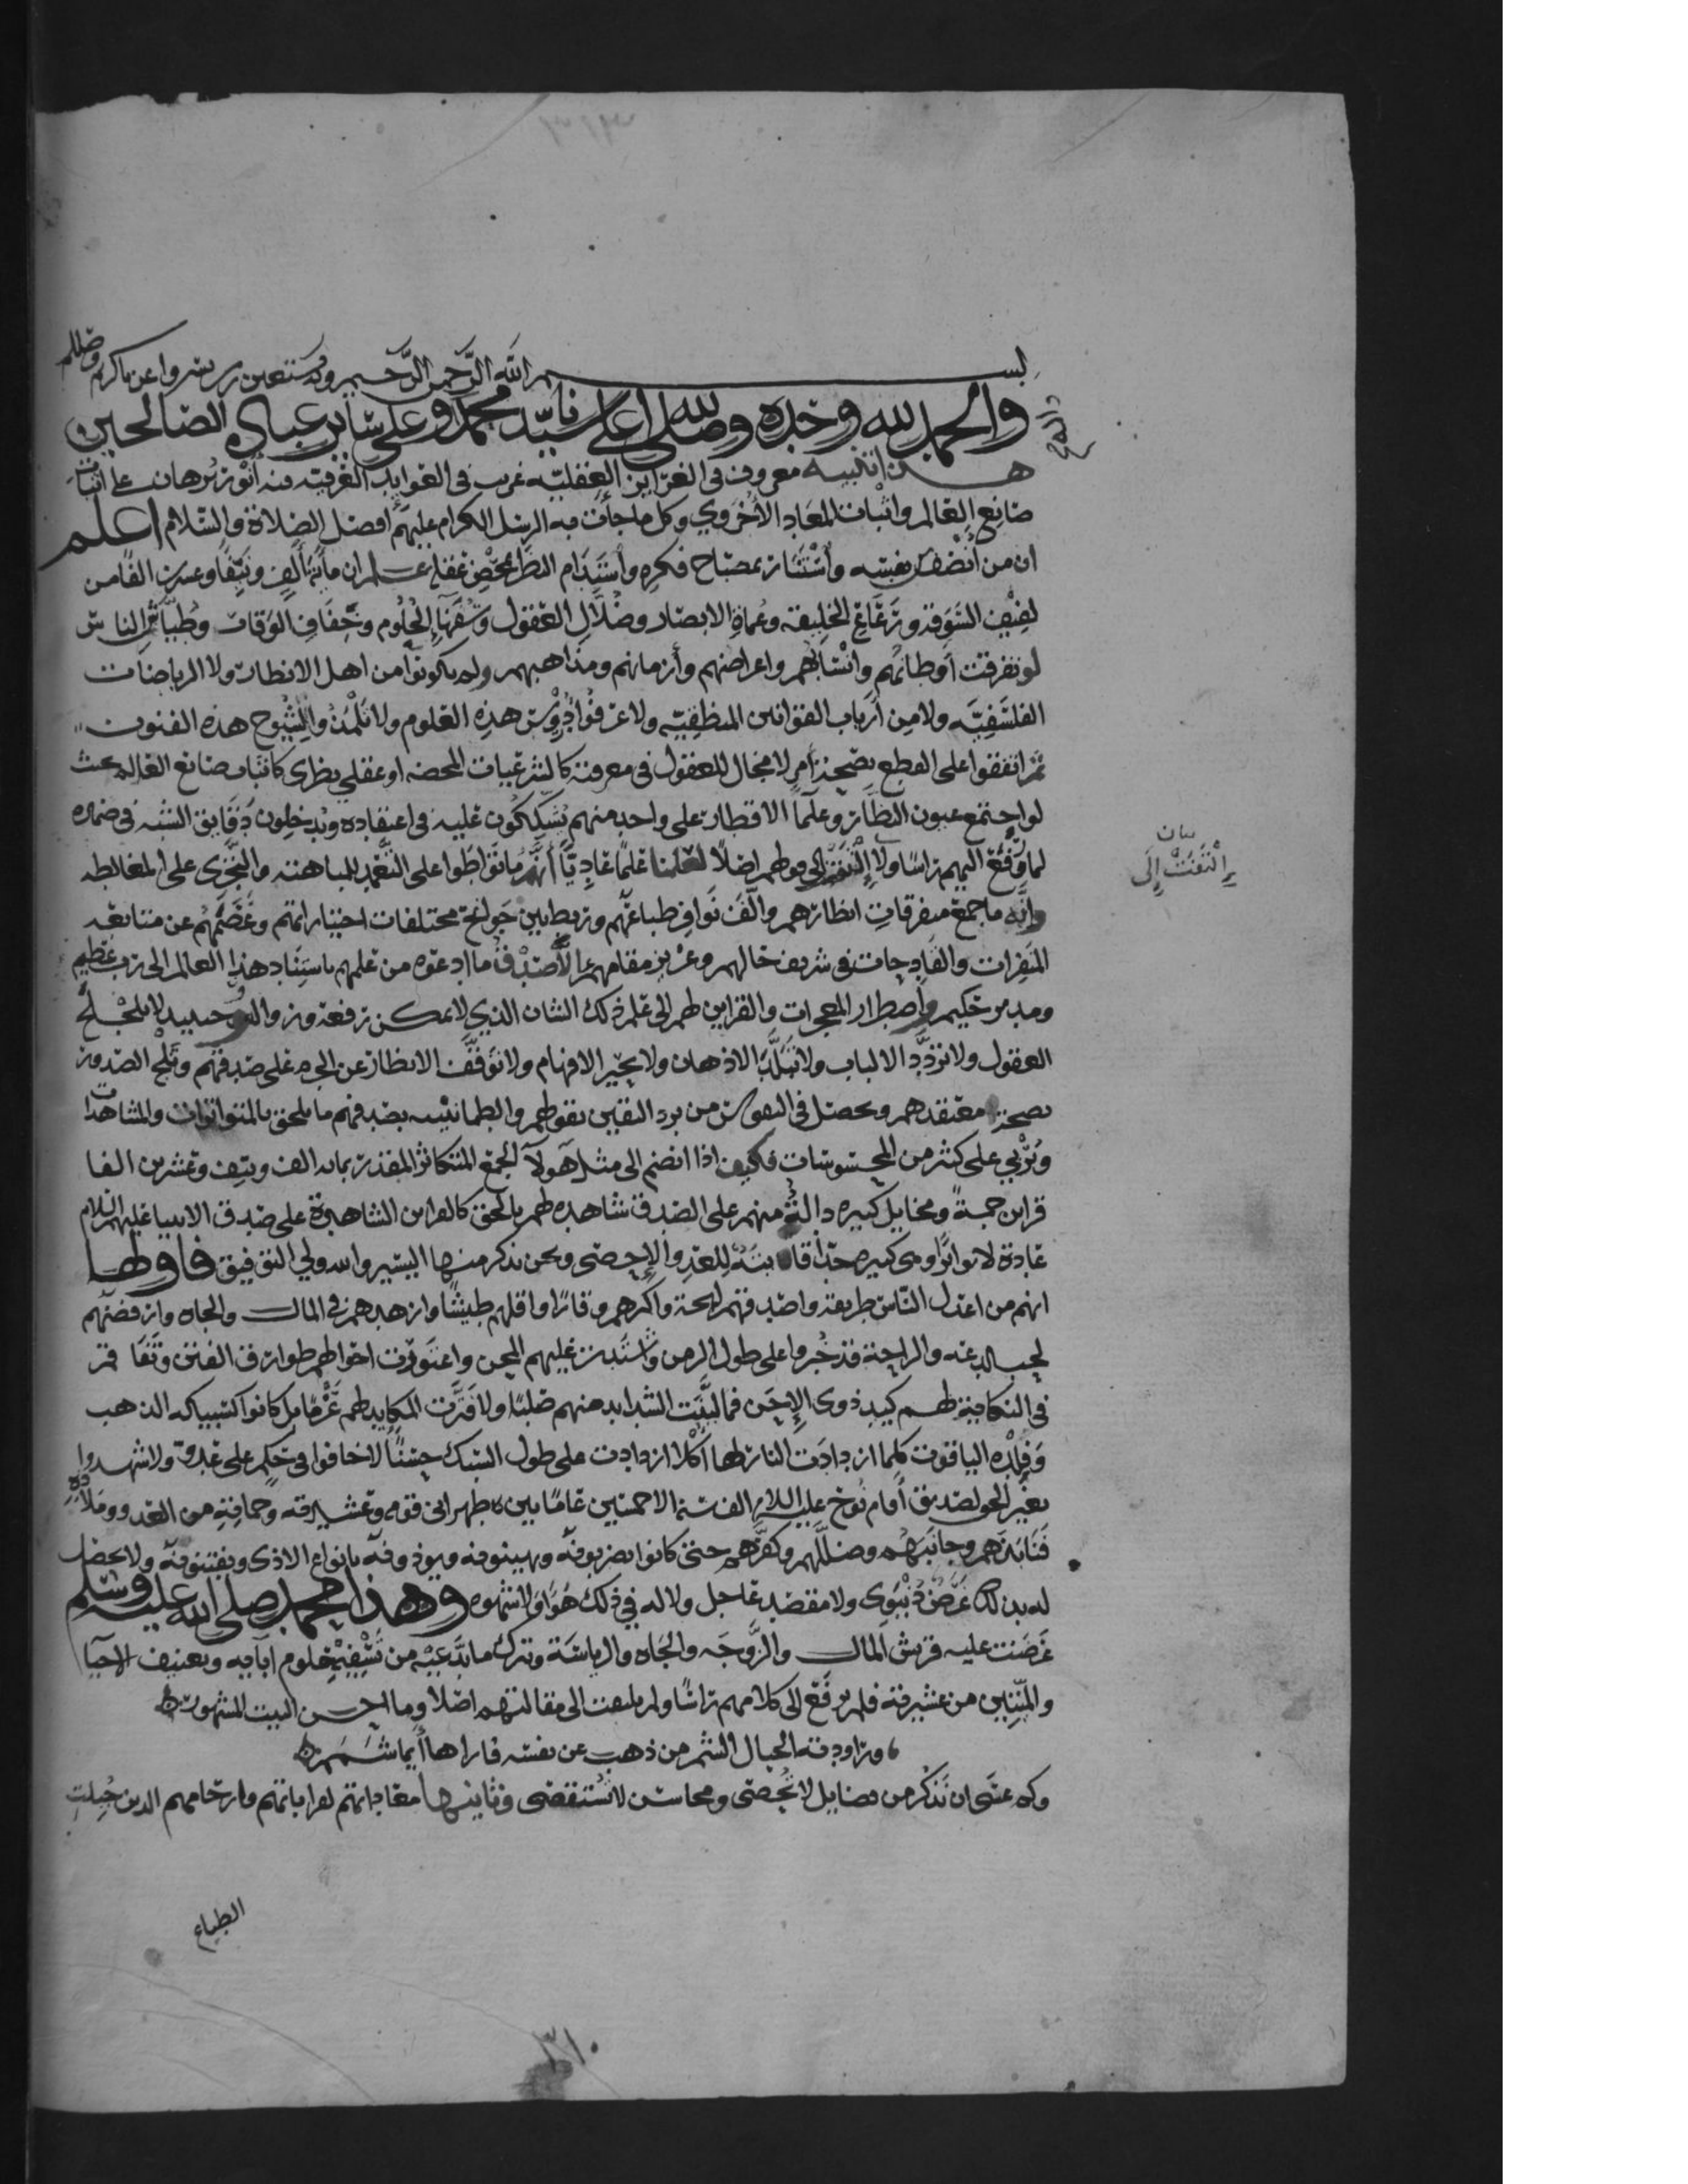 بسم الله الرحمن الرحيم وبه نستعين رب يسر واعن يا كريم
والحمد لله وحده وصلى الله على سيدنا محمد وعلى سائر عباده الصالحين
واله
هذا تنبيه معروف في الغرائز العقلية غريب في العوايد العرفية فيه أنور برهان على اثبات
صانع العالم واثبات المعاد الأخروي وكل ما جأت به الرسل الكرام عليهم افضل الصلاة والسلام اعلم
ان من أنصف نفسه وأستنار بمصباح فكره وأستدام النظر بمحض عقله علم ان مأية ألف ونيفا وعشرين الفا من
لفيف السوقة ورعاع الخليقة وعماة الابصار وضلال العقول وسفهاء الحلوم وخفاف الوقار وطياش الناس
لو تفرقت أوطانهم وانسابهم واعراضهم وأزمانهم ومذاهبهم ولم يكونوا من اهل الانظار ولا الرياضات
الفلسفية ولا من أرباب القوانين المنطقية ولا عرفوا دروس هذه العلوم ولا تلمذوا لشيوخ هذه الفنون
ثم اتفقوا على القطع بصحة أمر لا مجال للعقول في معرفته كالشرعيات المحضه او عقلي نظري كاثبات صانع العالم بحيث
لو اجتمع عيون النظار وعلما الاقطار على واحد منهم يشككون عليه في اعتقاده ويدخلون دقايق الشبه في ضميره
لما رفع اليهم راسا ولا إلتفت إلى قولهم اصلا لعلمنا علما عاديا أنهم ما تواطوا على التعمد للمباهتة والتجرى على المغالطه
بيان
إلتفت إلى
وإنه ما جمع متفرقات انظارهم والف نوافر طباعهم وربط بين جوانح مختلفات اختياراتهم وعصمهم عن متابعة
المنفرات والقادحات في شريف حالهم وعزيز مقامهم الا صدق ما ادعوه من علمهم باستناد هذا العالم الى رب عظيم
ومدبر حكيم واضطرار المعجزات والقراين لهم الى علم ذلك الشان الذي لا يمكن رفعه وزواله وحينئذ لا تلجلج
العقول ولا تردد الالباب ولا تبلد الاذهان ولا تحير الافهام ولا توقف الانظار عن الجزم على صدقهم وثلج الصدور
بصحة معتقدهم ويحصل في النفوس من برد اليقين بقولهم والطمانينه بصدقهم ما يلحق بالمتواترات والمشاهدات
وتربي على كثير من المحسوسات فكيف اذا انضم الى مثل هولآ الجمع المتكاثر المقدر بماية الف ونيف وعشرين الفا
قراين جمة ومخايل كبيره دالة منهم على الصدق شاهده لهم بالحق كالقراين الشاهدة على صدق الانبيا عليهم السلام
عادة لا تواترا وهي كثيره جدا فاثبته للعد والإحصى ونحن نذكر منها اليسير والله ولي التوفيق فاولها
انهم من اعدل الناس طريقة واصدقهم لهجة واكثرهم وقارا واقلهم طيشا وازهدهم في المال والجاه وارفضهم
لحب الدعة والراحة قد خبروا على طول الزمن واشتدت عليهم المحن واعتورت احوالهم طوارق الفتن وتفاقم
في النكاية لهم كيد ذوى الإحن فما لينت الشدايد منهم صلبا ولا فترت المكايد لهم عزما بل كانوا كسبيكه الذهب
وفلذه الياقوت كلما ازدادت النار لها أكلا ازدادت على طول السبك حسنا لا خافوا في حكم على عدو ولا شهدوا
بغير الحق لصديق أقام نوح عليه السلام الف سنة الا خمسين عاما بين ظهراني قومه وعشيرته وحماته من العدو وملاذه
فنابذهم وجانبهم وضللهم وكفرهم حتى كانوا يضربونه ويهينونه ويوذونه بانواع الاذى ويفتنونه ولا يحصل
له بذلك غرض دنيوى ولا مقصد عاجل ولا له في ذلك هوا ولا شهوه وهذا محمد صلى الله عليه وسلم
عرضت عليه قريش المال والزوجه والجاه والرياسة وترك ما يدعيه من تسفيه حلوم آبايه وتعنيف الاحيا
والميتين من عشيرته فلم يرفع الى كلامهم راسا ولم يلتفت الى مقالتهم اصلا وما احسن البيت المشهور
وراودته الجبال الشم من ذهب عن نفسه فاراها أيما شمم
وكم عسى ان نذكر من فضايل لا تحصى ومحاسن لا تستقصى وثانيها معاداتهم لقراباتهم وارحامهم الذين جبلت
الطباع
٣١٠